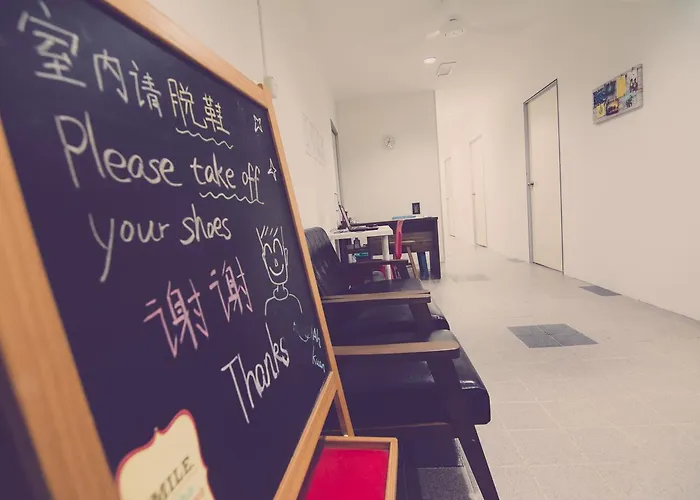 室内请脱鞋
Please take off
your shoes
谢谢
Thanks
SMILE